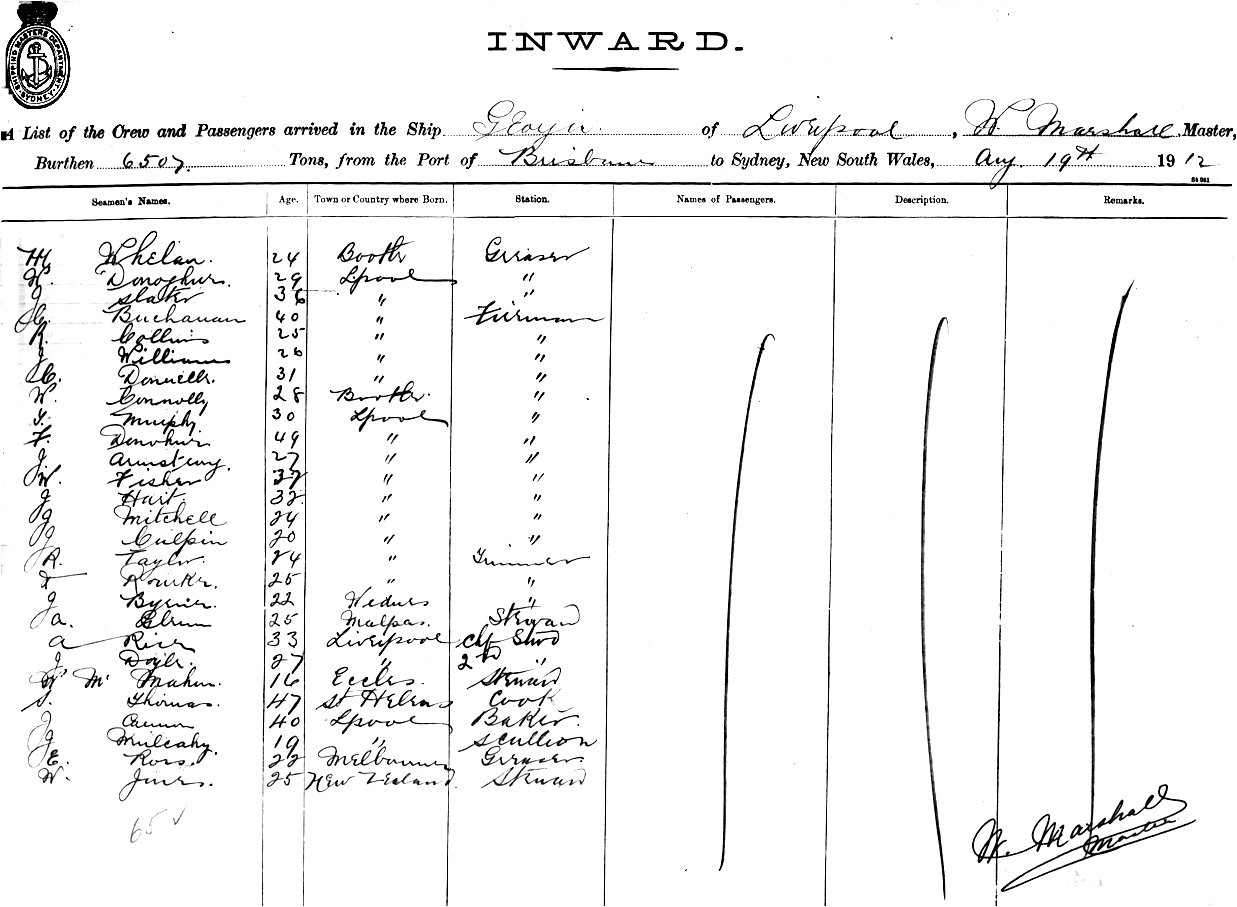 SHIPPING MASTERS DEPARTMENT SYDNEY
INWARD.
A List of the Crew and Passengers arrived in the Ship of Liverpool, W. Marshall Master,
Burthen 6507 Tons, from the Port of Brisbane to Sydney, New South Wales, Aug 19th 1912
Seamen's Names. Age. Town or Country where Born. Station. Names of Passengers. Description. Remarks.
Whelan. 24 Bootle Greaser
Donoghue. 29 Lpool "
J Slater 36 " "
Buchanan 40 " Fireman
R. Collins 25 " "
J Williams 26 " "
C. Donnell. 31 " "
W. Connolly 28 Bootle. "
Murphy 30 Lpool "
F. Donohue 49 " "
J Armstrong. 27 " "
W. Fisher 37 " "
J Hart. 32 " "
J Mitchell 24 " "
J Culpin 20 " "
R. Taylor. 24 " Trimmer
Rourke. 25 " "
J Byrne. 22 "
Ja. 25 Malpas. Steward
A Rice 33 Liverpool Chf Stwd
J Doyle. 27 " 2nd "
W Mc Mahon. 16 Eccles. Steward
S. Thomas. 47 St Helens Cook
J 40 Lpool Baker.
J Mulcahy. 19 " Scullion
E. Ross. 22 Melbourne Greaser
W. Jones. 25 New Zealand. Steward
65 ✓
W. Marshall
Master